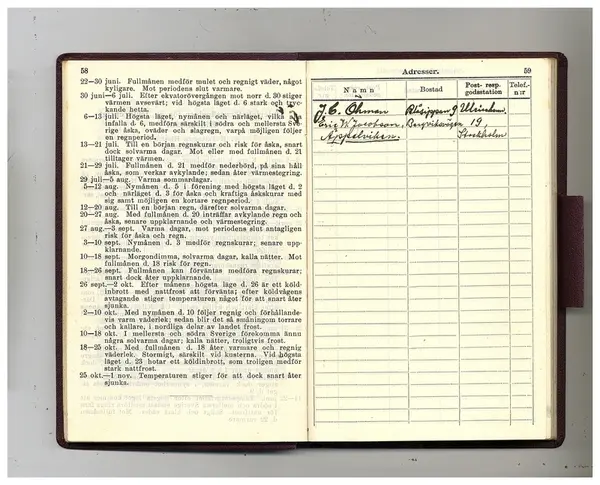 58
22—30 juni. Fullmånen medför mulet och regnigt väder, något
kyligare. Mot periodens slut varmare.
30 juni—6 juli. Efter ekvatorövergången mot norr d. 30 stiger
värmen avsevärt; vid högsta läget d. 6 stark och tryc-
kande hetta.
6—13 juli. Högsta läget, nymånen och närläget, vilka
infalla d. 6, medföra särskilt i södra och mellersta Sve-
rige åska, oväder och slagregn, varpå möjligen följer
en regnperiod.
13—21 juli. Till en början regnskurar och risk för åska, snart
dock solvarma dagar. Mot eller med fullmånen d. 21
tilltager värmen.
21—29 juli. Fullmånen d. 21 medför nederbörd, på sina håll
åska, som verkar avkylande; sedan åter värmestegring.
29 juli—5 aug. Varma sommardagar.
5—12 aug. Nymånen d. 5 i förening med högsta läget d. 2
och närläget d. 3 för åska och kraftiga åskskurar med
sig samt möjligen en kortare regnperiod.
12—20 aug. Till en början regn, därefter solvarma dagar.
20—27 aug. Med fullmånen d. 20 inträffar avkylande regn och
åska, senare uppklarnande och värmestegring.
27 aug.—3 sept. Varma dagar, mot periodens slut antagligen
risk för åska och regn.
3—10 sept. Nymånen d. 3 medför regnskurar; senare upp-
klarnande.
10—18 sept. Morgondimma, solvarma dagar, kalla nätter. Mot
fullmånen d. 18 risk för regn.
18—26 sept. Fullmånen kan förväntas medföra regnskurar;
smart dock åter uppklarnande.
26 sept.—2 okt. Efter månens högsta läge d. 26 är ett köld-
inbrott med nattfrost att förvänta; efter köldvågens
avtagande stiger temperaturen något för att snart åter
sjunka.
2—10 okt. Med nymånen d. 10 följer regnig och förhållande-
vis varm väderlek; sedan blir det så småningom torrare
och kallare, i nordliga delar av landet frost.
10—18 okt. I mellersta och södra Sverige förekomma ännu
några solvarma dagar; kalla nätter, troligtvis frost.
18—25 okt. Med fullmånen d. 18 åter varmare och regnig
väderlek. Stormigt, särskilt vid kusterna. Vid högsta
läget d. 23 hotar ett köldinbrott, som troligen medför
stark nattfrost.
25 okt.—1 nov. Temperaturen stiger för att dock snart åter
sjunka.
Adresser. 59
Namn Bostad Post- resp. godsstation Telef.-n:r
J. C. Öhman 9 Ulricehamn
Eric W. Jacobson, Bergviksvägen 19,
Äppelviken. Stockholm